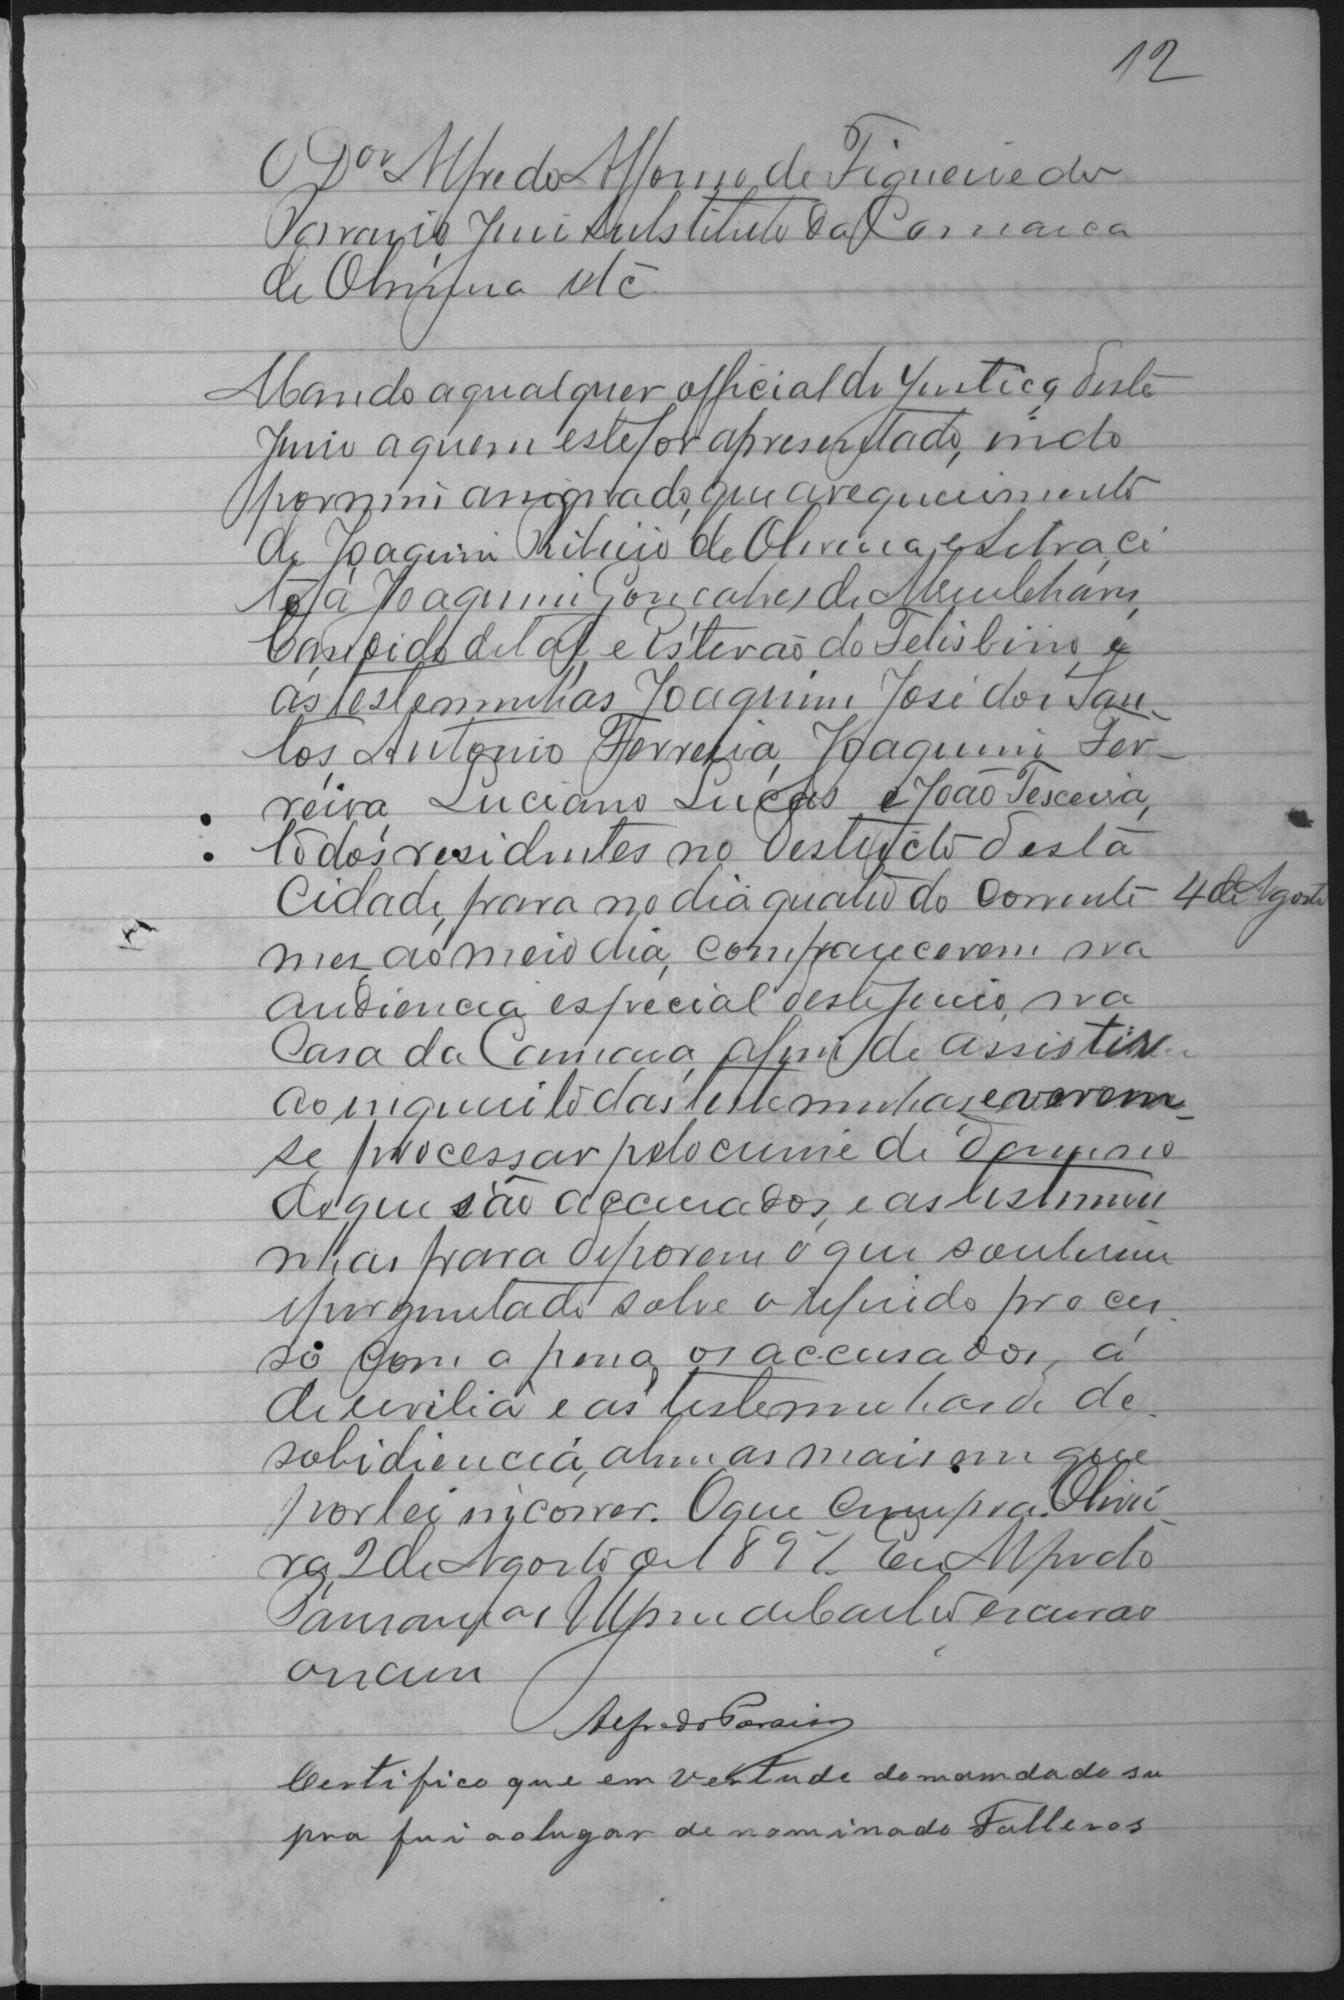 12
O Dor Alfredo Affonso de Figueiredo
Paraiso Juiz Substituto da Comarca
de Oliveira etc
Mando a qualquer official de Justiça deste
Juizo a quem este for apresentado, indo
por mim assignado, que a requerimento
de Joaquim Ribeiro de Oliveira e Silva, ci
te a Joaquim Gonçalves de
Candido de tal, e Estevão do Felisbino, e
ás testemunhas Joaquim José dos San-
tos, Antonio Ferreira, Joaquim Fer-
reira, Luciano Lucas e João Texceira,
todos residentes no destricto desta
Cidade, para no dia quatro do corrente 4 de Agosto
mez, ao meio dia, comparecerem na
audiencia especial deste Juizo, na
Casa da Camara, afim de assistir
ao inquerito das testemunhas e verem-
se processar pelo crime de damno
de que são accusados, e as testemu
nhas para deporem o que souberem
e perguntado sobre o referido proces
so com a pena, os accusados, á
de revilia e as testemunhas de de-
sobidiencia, alem as mais em que
por lei incorrer. O que cumpra. Olivei-
ra, 2 de Agosto de 1897. Eu Alfredo
de Castro escrivão
o escrevi
Alfredo Paraiso
Certifico que em vertude do mamdado su
pra fui ao lugar denominado Falleros